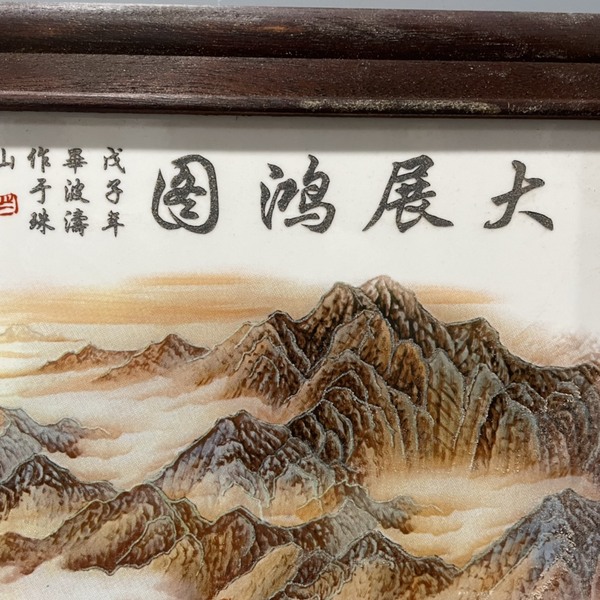 大展鸿图
戊子年
畢波濤
作于珠
山